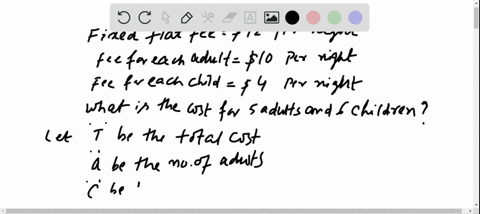 Fixed flat fee = $12 Per night
fee for each adult = $10 Per night
Fee for each child = $4 Per night
what is the cost for 5 adults and 6 children?
Let 'T' be the total cost
'a' be the no. of adults
'C' be